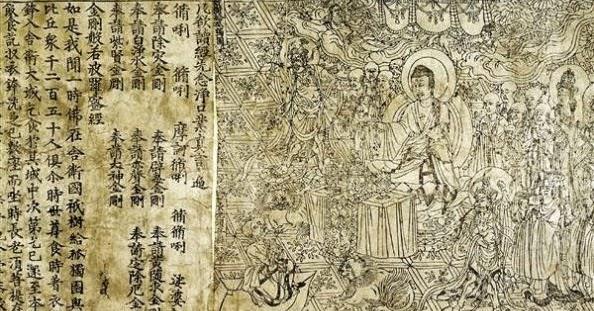 凡欲讀經先念淨口業真言一遍
脩唎 脩唎 摩訶脩唎 脩脩唎 娑婆
奉請除災金剛 奉請辟毒金剛 奉請黃隨求金剛
奉請白淨水金剛 奉請赤聲金剛 奉請定除厄金剛
奉請紫賢金剛 奉請大神金剛
金剛般若波羅蜜經
如是我聞一時佛在舍衛國祇樹給孤獨園與
比丘衆千二百五十人俱尒時世尊食時著衣
鉢入舍衛大城乞食於其城中次第乞已還至本
飯食訖收衣鉢洗足已敷座而坐時長老須菩提在